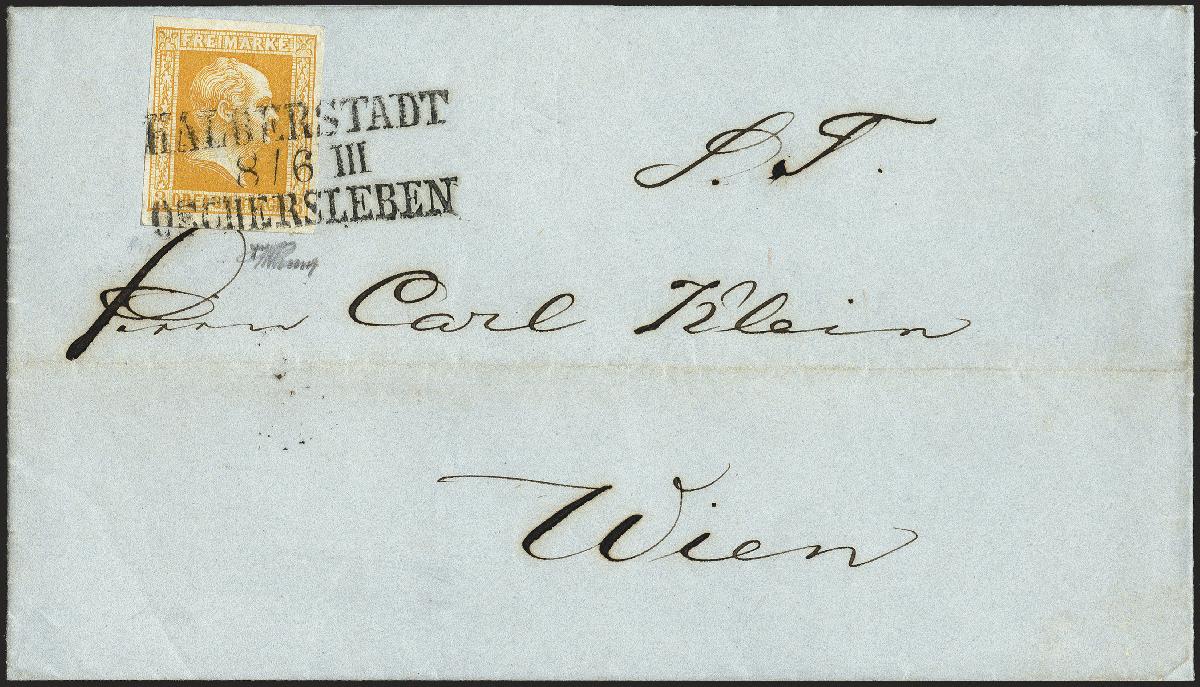 FREIMARKE
HALBERSTADT
8 / 6 III
OSCHERSLEBEN
S. T.
Herrn Carl Klein
Wien